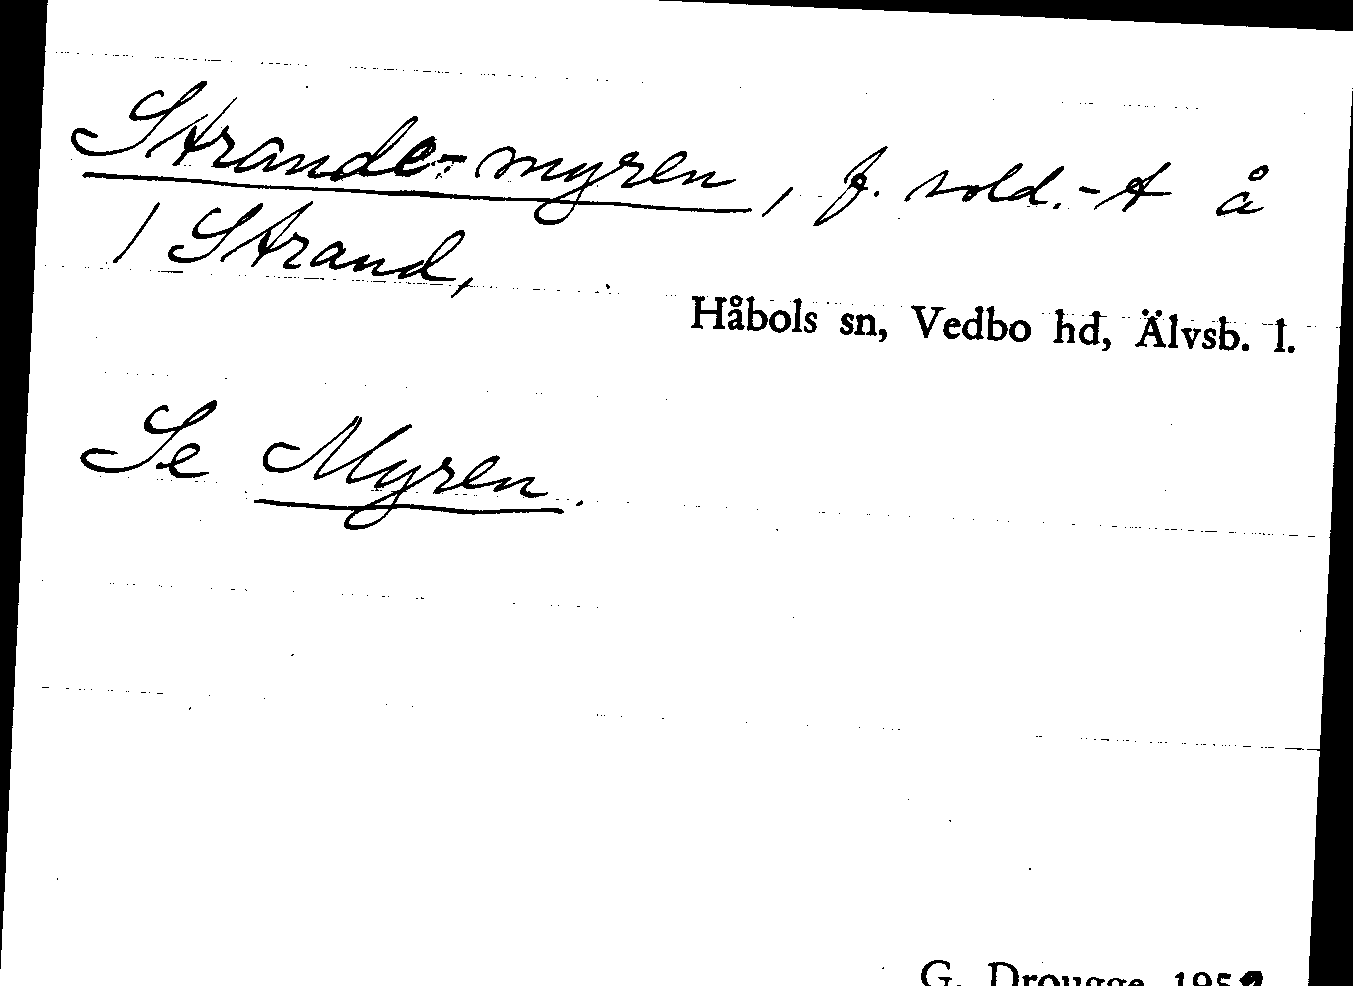 Strande-myren, f. sold.-t å
1 Strand,
Håbols sn, Vedbo hd, Älvsb. l.
Se Myren.
G. Drougge